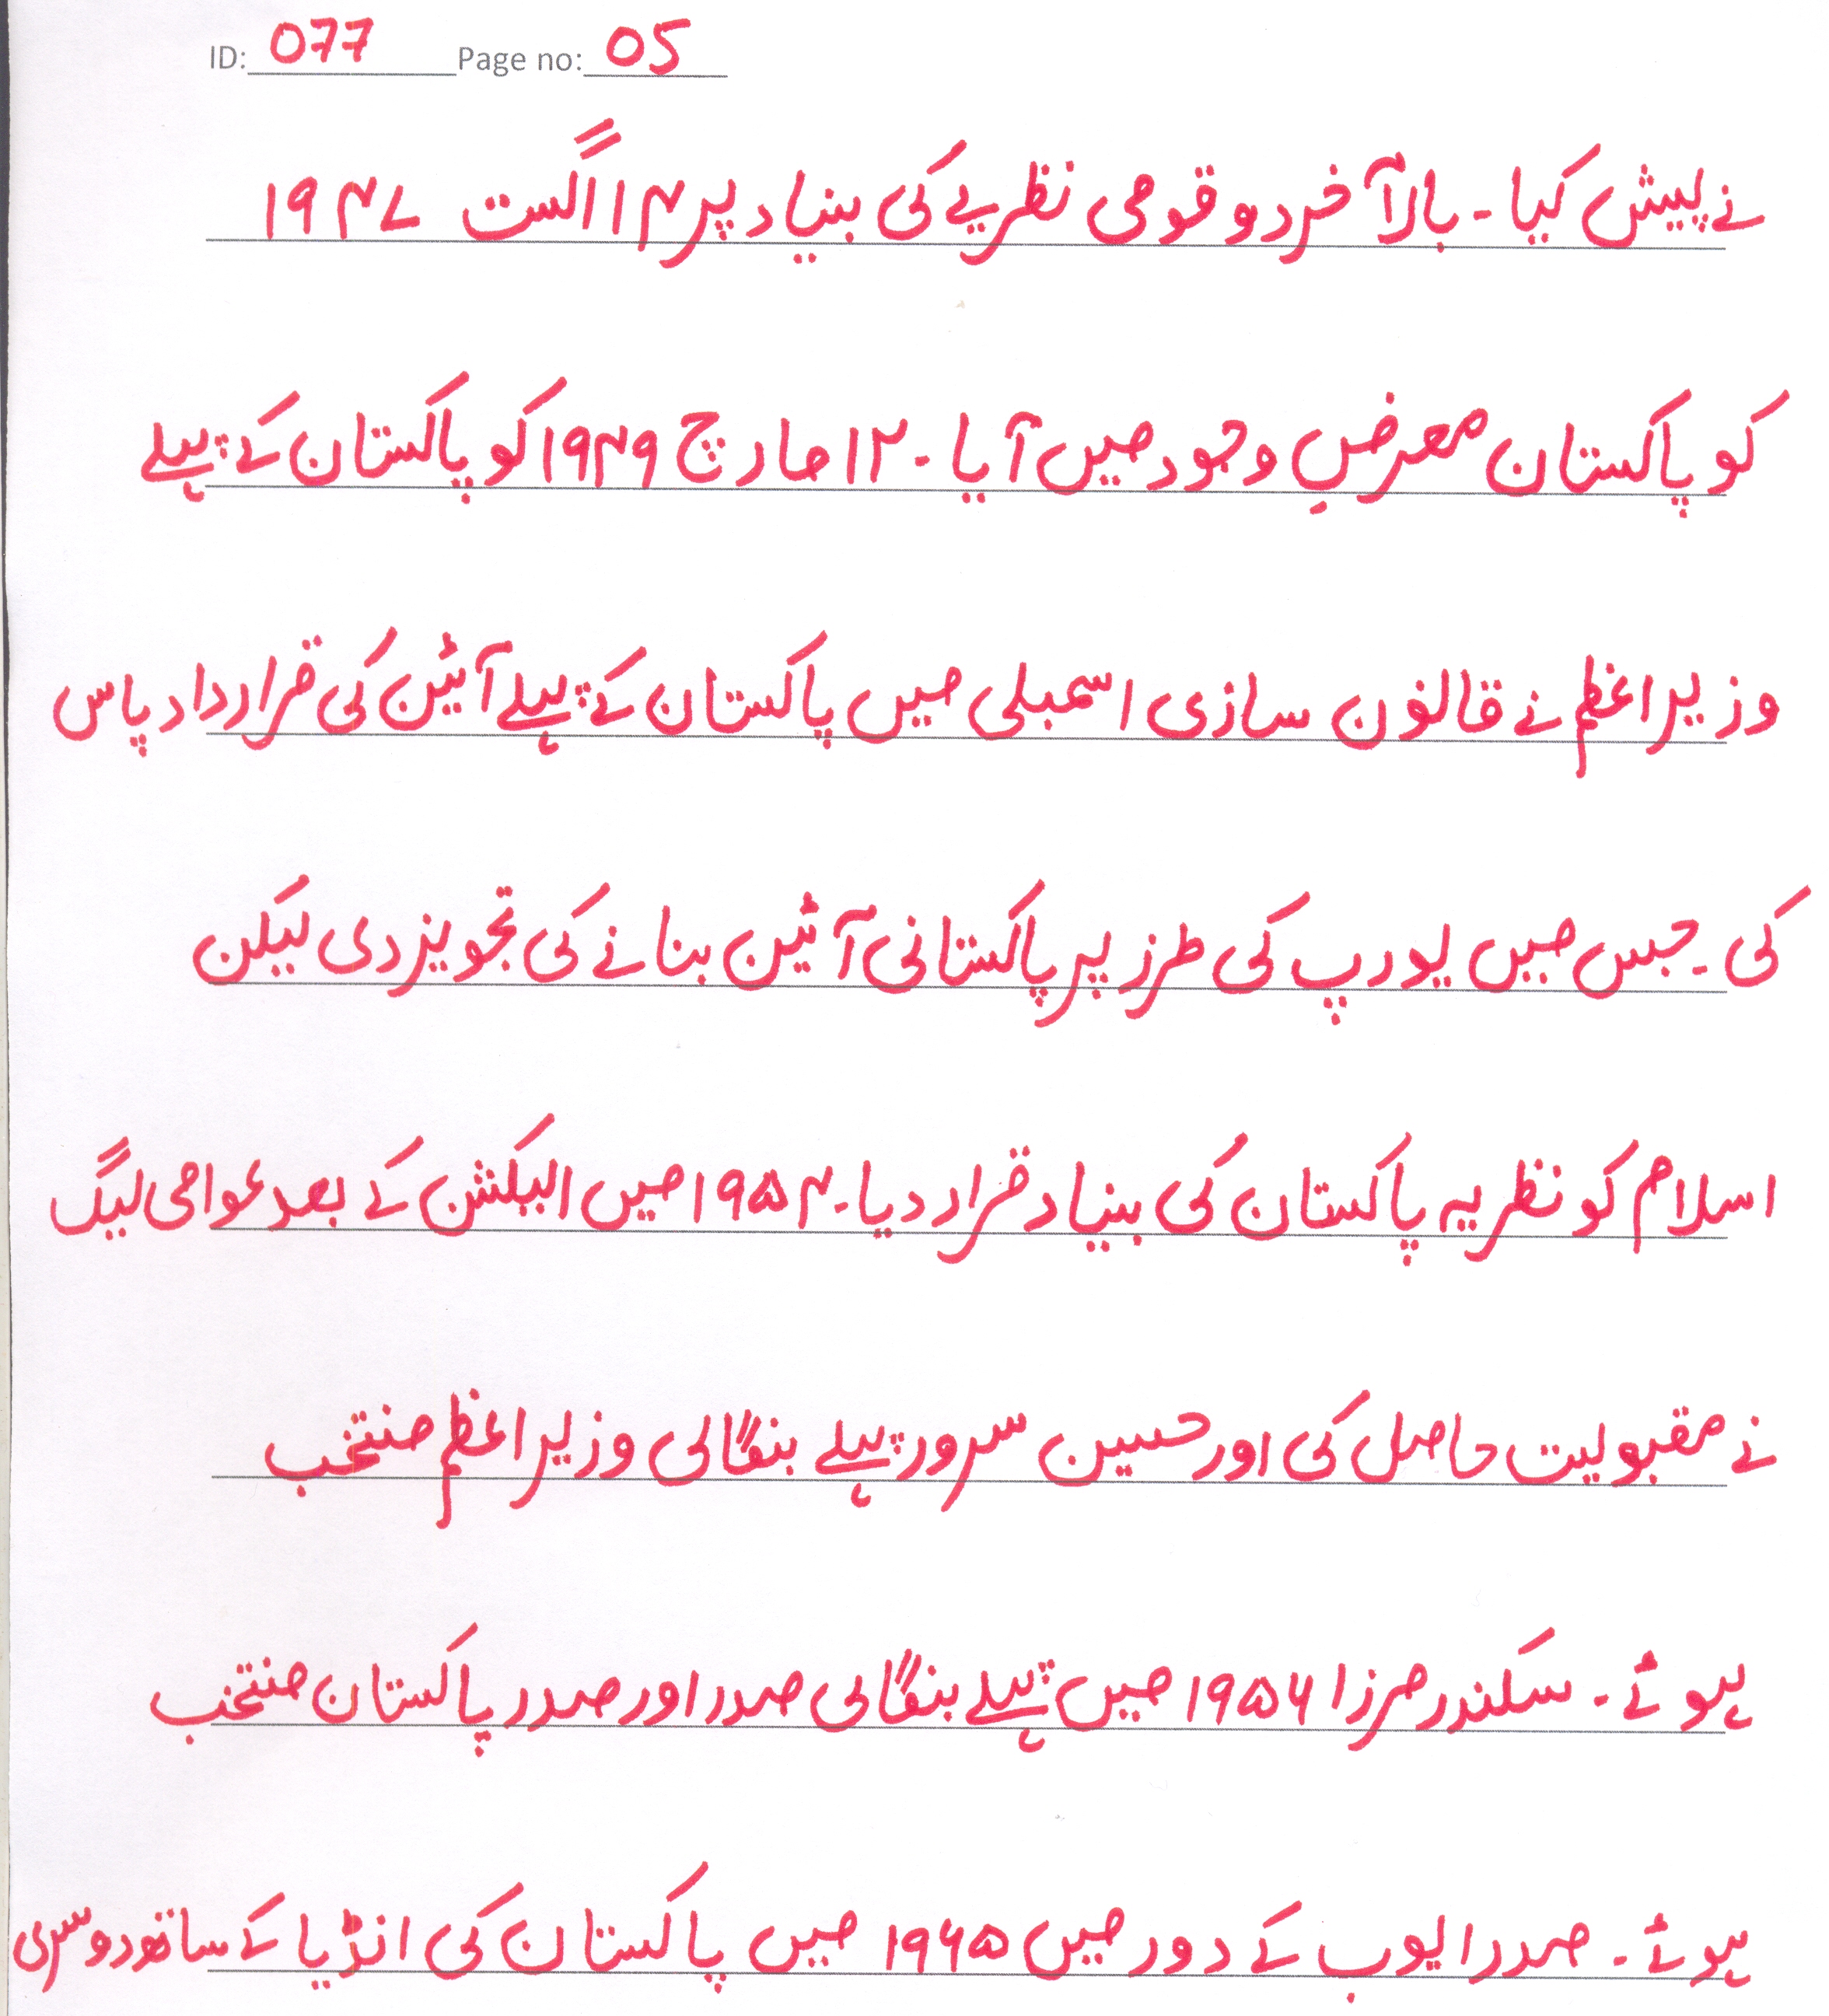 ID: 077 Page no: 05
نے پیش کیا۔ بالاآخر دو قومی نظریے کی بنیاد پر ۱۴ اگست ۱۹۴۷
کو پاکستان معرضِ وجود میں آیا۔ ۱۲ مارچ ۱۹۴۹ کو پاکستان کے پہلے
وزیراعظم نے قانون سازی اسمبلی میں پاکستان کے پہلے آئین کی قرارداد پاس
کی۔ جس میں یورپ کی طرز پر پاکستانی آئین بنانے کی تجویز دی لیکن
اسلام کو نظریہ پاکستان کی بنیاد قرار دیا۔ ۱۹۵۴ میں الیکشن کے بعد عوامی لیگ
نے مقبولیت حاصل کی اور حسین سرور پہلے بنگالی وزیراعظم منتخب
ہوئے۔ سکندر مرزا ۱۹۵۶ میں پہلے بنگالی صدر اور صدر پاکستان منتخب
ہوئے۔ صدر ایوب کے دور میں ۱۹۶۵ میں پاکستان کی انڈیا کے ساتھ دوسری